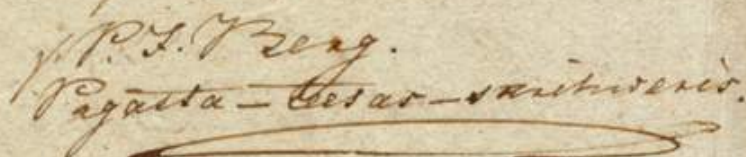 P. J. Berg.
Pagasta-teesas-skrihweris.